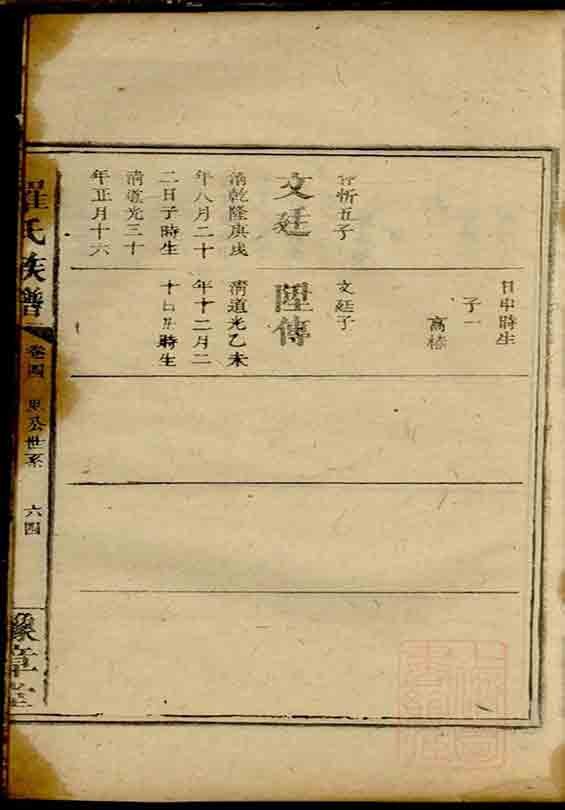 文廷
清乾隆庚戌
年八月二十
二日子時生
清道光三十
年正月十六
日申時生
子一
高榛
文廷子
陞傳
清道光乙未
年十二月二
時生
羅氏族譜
卷四
公世系
六四
豫章堂